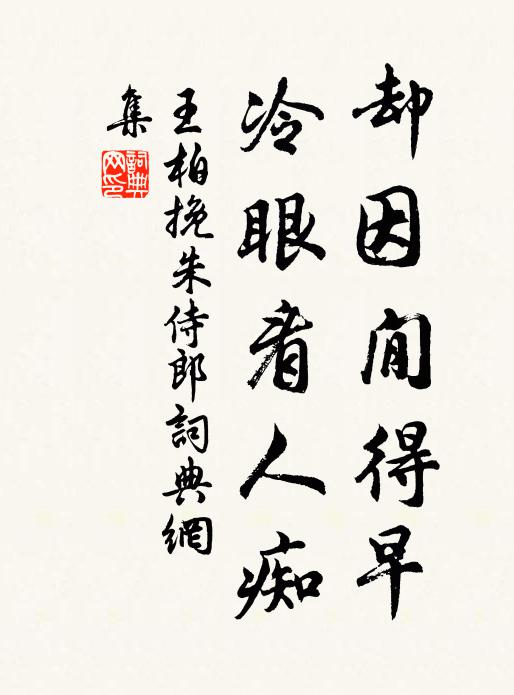 却因閒得早
冷眼看人痴
王柏挽朱侍郎詞典網
集
詞典
网印